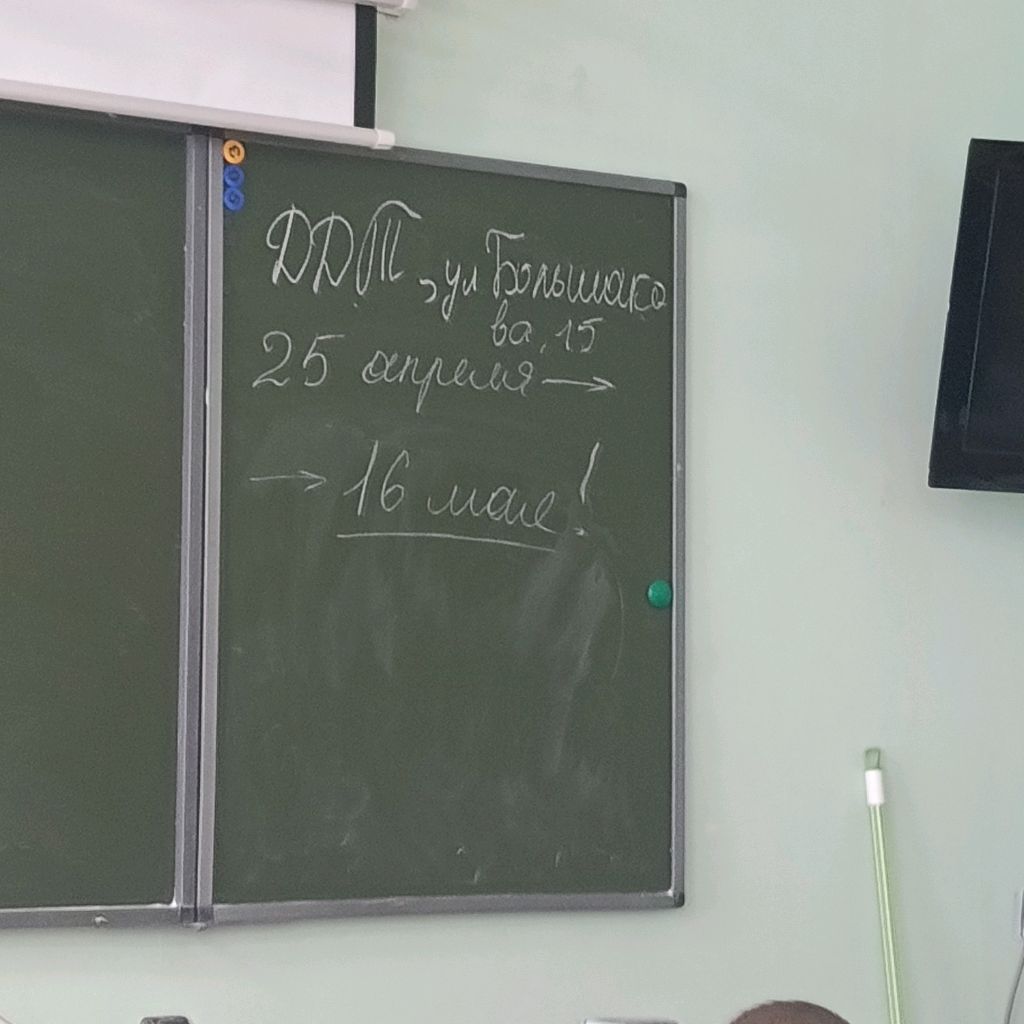 ДДТ, ул Большако
ва, 15
25 апреля →
→ 16 мая!